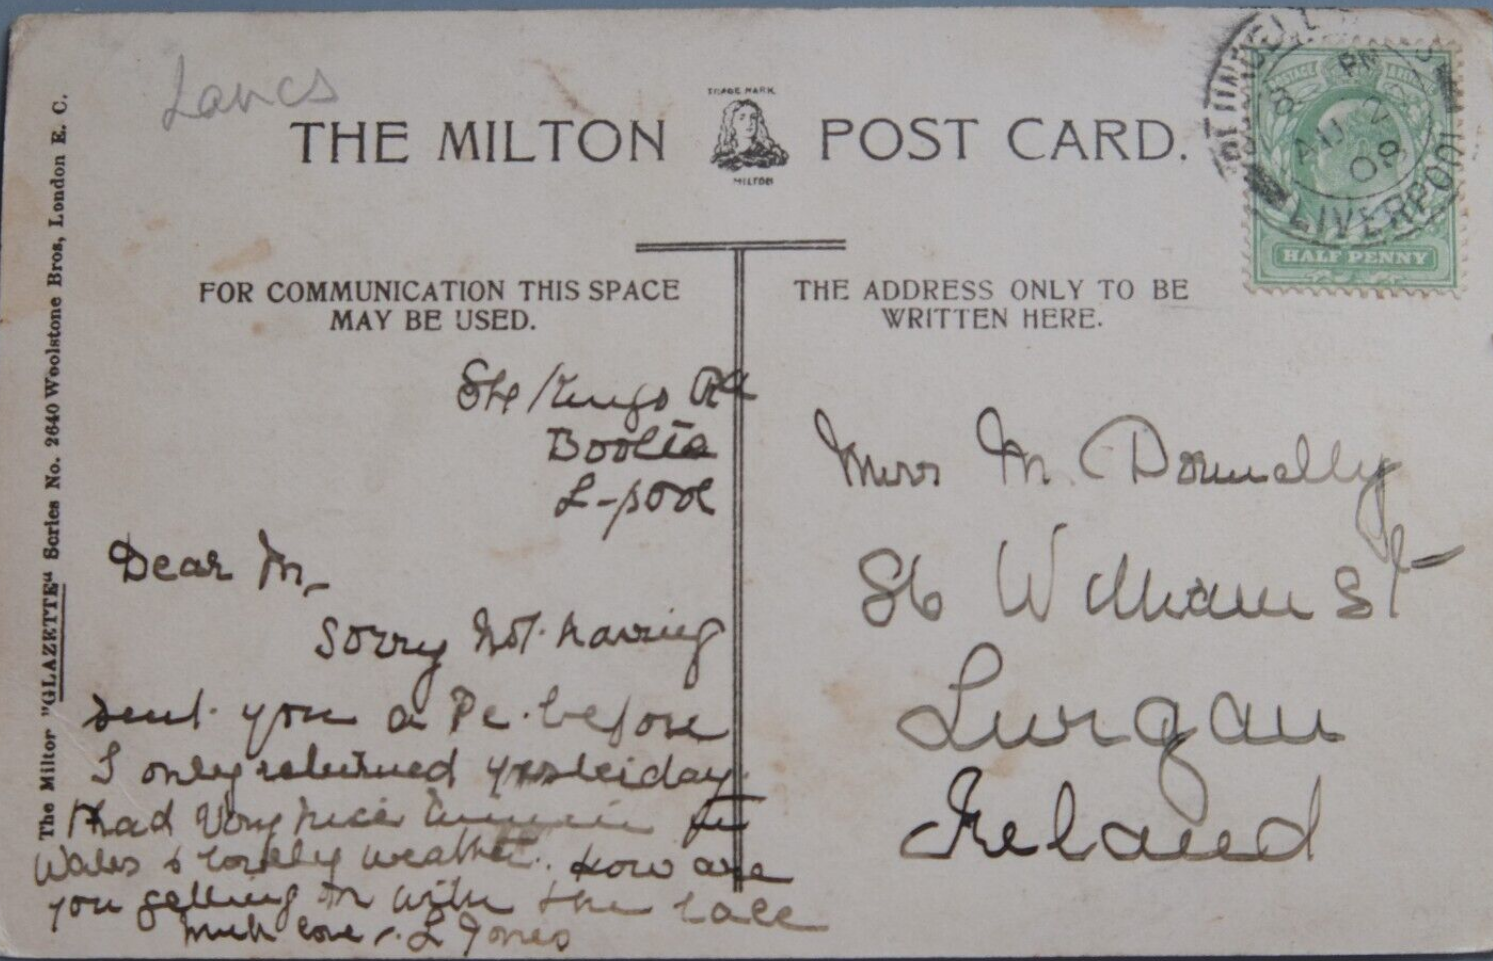 Lancs
THE MILTON POST CARD.
TRADE MARK
MILTON
FOR COMMUNICATION THIS SPACE
MAY BE USED.
THE ADDRESS ONLY TO BE
WRITTEN HERE.
8 PM
AU 2
08
LIVERPOOL
POSTAGE
HALF PENNY
The Milton "GLAZETTE" Series No. 2640 Woolstone Bros, London E. C.
Kings Rd
Bootle
L-pool
Dear M,
Sorry not having
sent you a Pc. before
I only returned yesterday.
Had very nice time in
Wales & lovely weather. How are
you getting on with the lace
much love. L Jones
Miss M. Donnelly
86 William St
Lurgan
Ireland